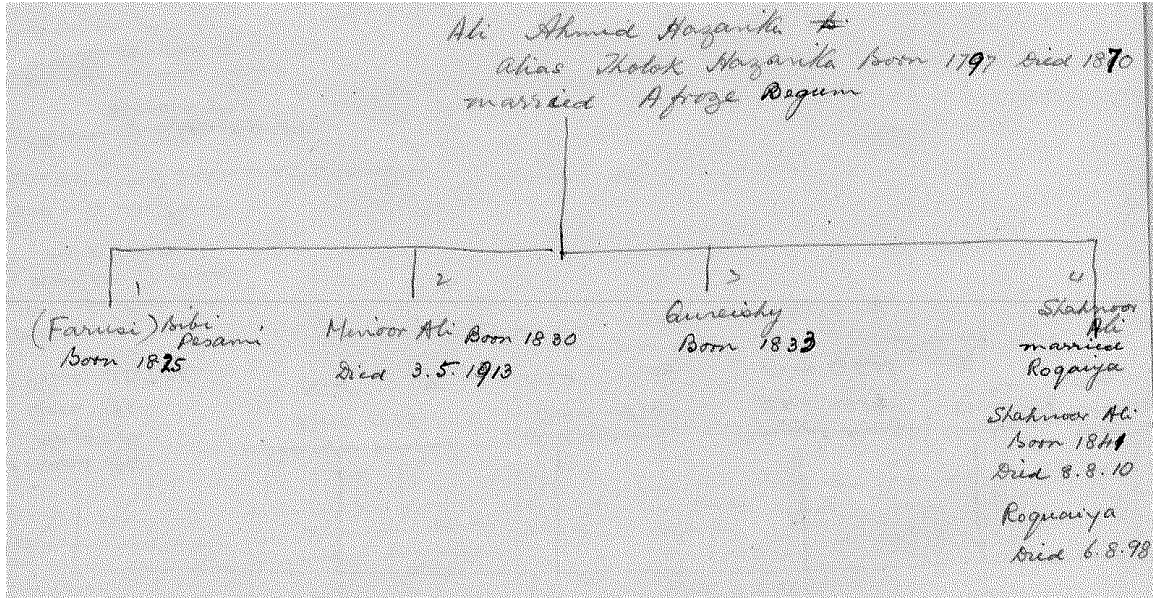 Ali Ahmed Hazarika
alias Tholok Hazarika Boon 1797 Died 1870
married Afroze Begum
1
2
3
4
(Farusi) Bibi
Pesami
Boon 1825
Minoor Ali Boon 1830
Died 3.5.1913
Qureishy
Boon 1833
Shahnoor
Ali
married
Roqaiya
Shahnoor Ali
Boon 1841
Died 8.8.10
Roquaiya
Died 6.8.98